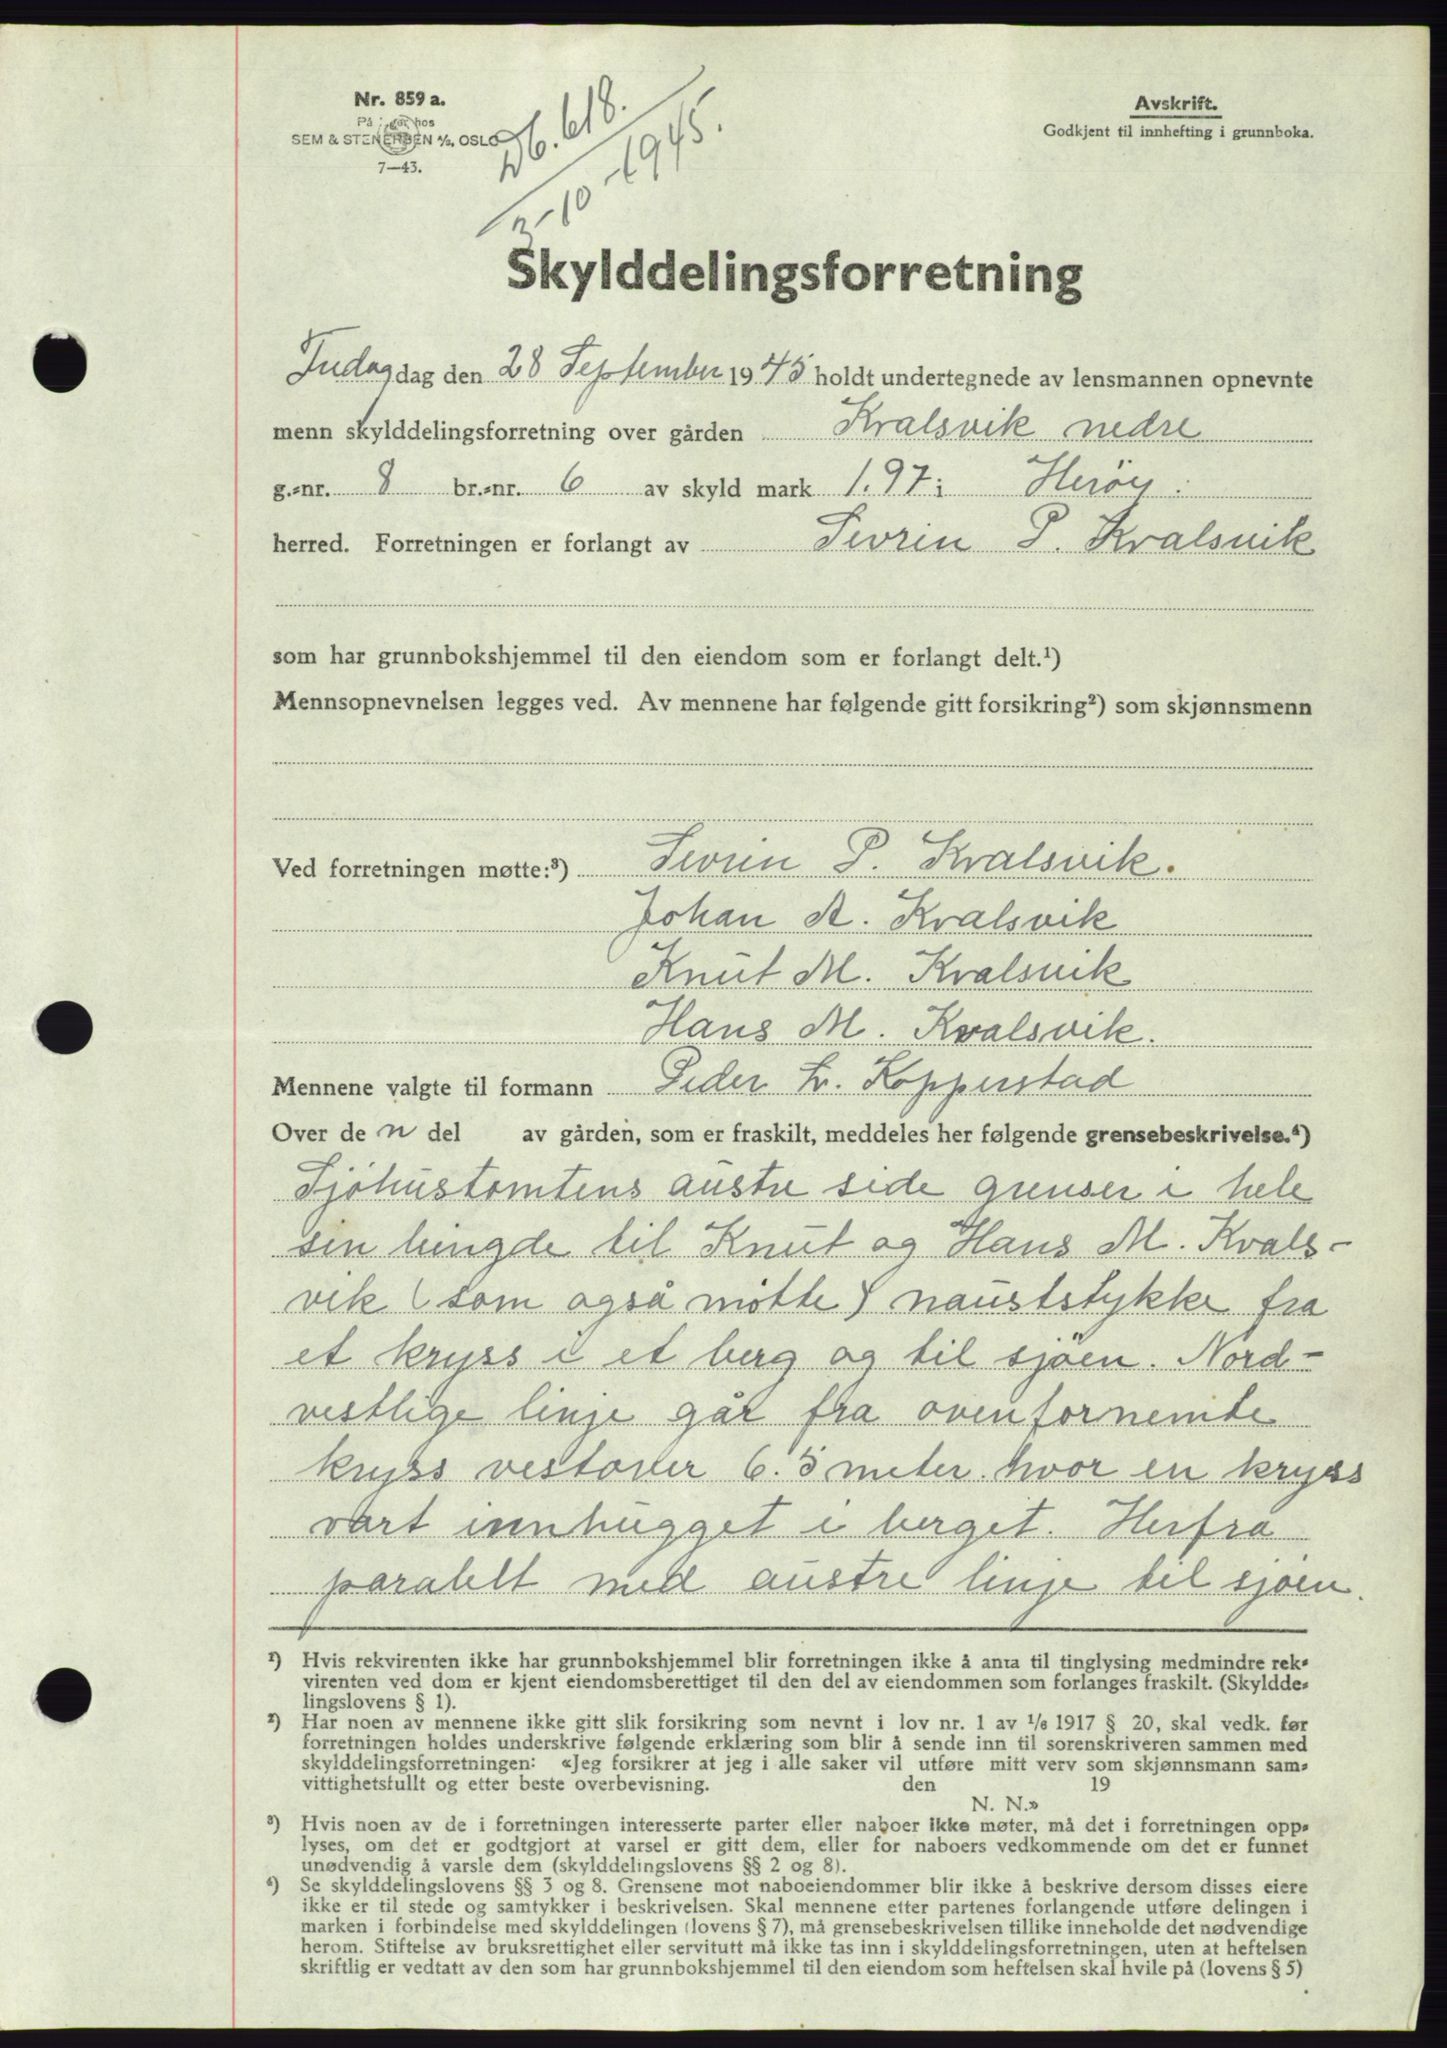 Nr. 859 a.
På lager hos
SEM & STENERSEN A/S, OSLO
7—43.
Db. 618.
3-10-1945.
Avskrift.
Godkjent til innhefting i grunnboka.
Skylddelingsforretning
Fredag dag den 28 September 1945 holdt undertegnede av lensmannen opnevnte
menn skylddelingsforretning over gården Kvalsvik nedre
g.-nr. 8 br.-nr. 6 av skyld mark 1.97 i Herøy.
herred. Forretningen er forlangt av Sevrin P. Kvalsvik
som har grunnbokshjemmel til den eiendom som er forlangt delt.¹)
Mennsopnevnelsen legges ved. Av mennene har følgende gitt forsikring²) som skjønnsmenn
Ved forretningen møtte:³) Sevrin P. Kvalsvik.
Johan A. Kvalsvik
Knut M. Kvalsvik
Hans M. Kvalsvik.
Mennene valgte til formann Peder L. Kopperstad
Over de n del av gården, som er fraskilt, meddeles her følgende grensebeskrivelse.⁴)
Sjøhustomtens austre side grenser i hele
sin lengde til Knut og Hans M. Kvals-
vik (som også møtte) nauststykke fra
et kryss i et berg og til sjøen. Nord-
vestlige linje går fra ovenfornemte
kryss vestover 6.5 meter. hvor en kryss
vart innhugget i berget. Herfra
paralelt med austre linje til sjøen.
¹) Hvis rekvirenten ikke har grunnbokshjemmel blir forretningen ikke å anta til tinglysing medmindre rek-
virenten ved dom er kjent eiendomsberettiget til den del av eiendommen som forlanges fraskilt. (Skyldde-
lingslovens § 1).
²) Har noen av mennene ikke gitt slik forsikring som nevnt i lov nr. 1 av 1/6 1917 § 20, skal vedk. før
forretningen holdes underskrive følgende erklæring som blir å sende inn til sorenskriveren sammen med
skylddelingsforretningen: «Jeg forsikrer at jeg i alle saker vil utføre mitt verv som skjønnsmann sam-
vittighetsfullt og etter beste overbevisning. den 19
N. N.»
³) Hvis noen av de i forretningen interesserte parter eller naboer ikke møter, må det i forretningen opp-
lyses, om det er godtgjort at varsel er gitt dem, eller for naboers vedkommende om det er funnet
unødvendig å varsle dem (skylddelingslovens §§ 2 og 8).
⁴) Se skylddelingslovens §§ 3 og 8. Grensene mot naboeiendommer blir ikke å beskrive dersom disses eiere
ikke er til stede og samtykker i beskrivelsen. Skal mennene etter partenes forlangende utføre delingen i
marken i forbindelse med skylddelingen (lovens § 7), må grensebeskrivelsen tillike inneholde det nødvendige
herom. Stiftelse av bruksrettighet eller servitutt må ikke tas inn i skylddelingsforretningen, uten at heftelsen
skriftlig er vedtatt av den som har grunnbokshjemmel til den eiendom som heftelsen skal hvile på (lovens § 5)